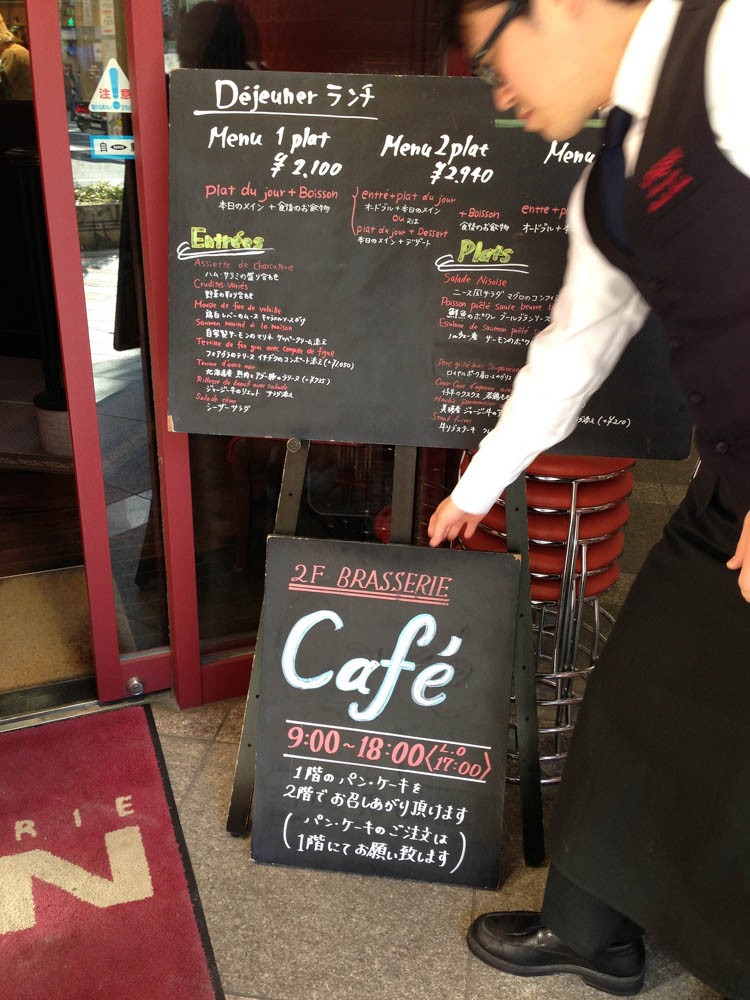 注!意
自
Déjeuner ランチ
Menu 1 plat
¥2.100
plat du jour + Boisson
本日のメイン + 食後のお飲物
Menu 2 plat
¥2.940
entré+plat du jour
オードブル+本日のメイン
ou 又は
plat du jour + Dessert
本日のメイン + デザート
+ Boisson
食後のお飲物
Menu
entre + p
オードブル+本
Entrées
Assiette de Charcuterie
ハム・サラミの盛り合わせ
Crudités variés
野菜の盛り合わせ
Mousse de foie de volaille
鶏白レバーのムース
Saumon mariné à la maison
自家製サーモンのマリネ ケッパークリーム添え
Terrine de foie gras avec compote de figue
フォアグラのテリーヌ イチヂクのコンポート添え(+¥1,050)
北海道産
(+¥735)
ジャージー牛のリエット サラダ添え
Salade césar
シーザーサラダ
Plats
Salade Niçoise
ニース風サラダ マグロのコンフィ
Poisson poêlé sauce beurre b
鮮魚のポワレ ブールブランソース
Escalope de Saumon poêlé s
ノルウェー産 サーモンのポワレ
(+¥210)
2F BRASSERIE
Café
9:00~18:00〈L.O 17:00〉
1階のパン・ケーキを
2階でお召しあがり頂けます
(パン・ケーキのご注文は
1階にてお願い致します)
RIE
N